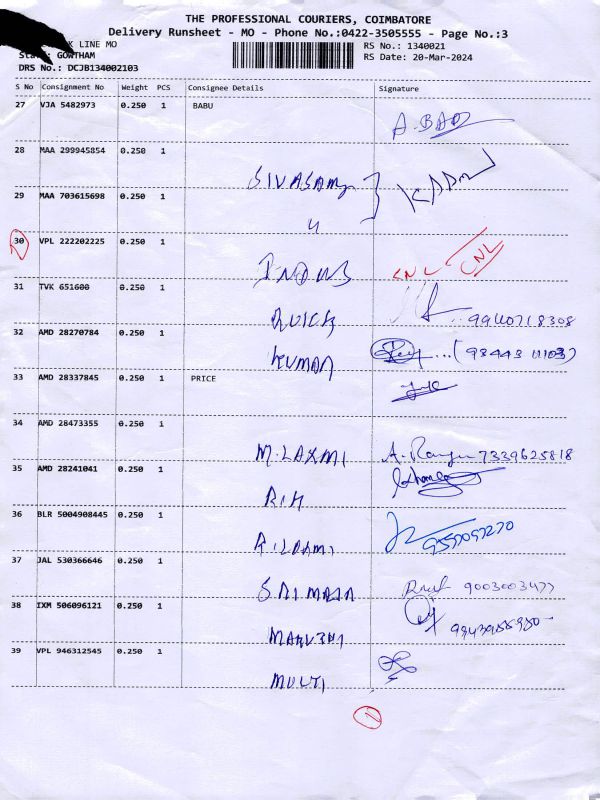 THE PROFESSIONAL COURIERS, COIMBATORE
Delivery Runsheet - MO - Phone No.:0422-3505555 - Page No.:3
LINE MO RS No.: 1340021
GOWTHAM RS Date: 20-Mar-2024
DRS No.: DCJB134002103
S No Consignment No Weight PCS Consignee Details Signature
27 VJA 5482973 0.250 1 BABU
A. BAD
28 MAA 299945854 0.250 1
SIVASAMY
29 MAA 703615698 0.250 1
30 VPL 222202225 0.250 1
INDUS CNL CNL
31 TVK 651600 0.250 1
QUICK 9940718308
32 AMD 28270784 0.250 1
KUMAR
33 AMD 28337845 0.250 1 PRICE
34 AMD 28473355 0.250 1
M. LAXMI A. 7339625818
35 AMD 28241041 0.250 1
36 BLR 5004908445 0.250 1
37 JAL 530366646 0.250 1
SRI MATA 9003003477
38 IXM 506096121 0.250 1
39 VPL 946312545 0.250 1
MULTI
1